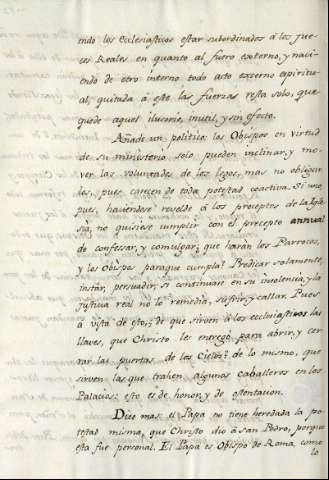 endo los Ecclesiasticos estar subordinados à los Jue-
ces Reales en quanto al fuero externo, y naci-
endo de otro interno todo acto externo espiritu-
al, quitada à este las fuerzas resta solo, que
quede aquel ilusorio, inutil, y sin efecto.
Añade un politico: los Obispos en virtud
de su ministerio solo pueden inclinar, y mo-
ver las voluntades de los legos, mas no obligar
les, pues carecen de toda potestad coactiva. Si uno
pues, haviendose revelde à los preceptos de la Igle-
sia, no quisiese cumplir con el precepto annual
de confesar, y comulgar; que haràn los Parrocos,
y los Obispos paraque cumpla? Predicar solamente,
instar, persuadir; si continuare en su insolencia, y la
Justicia real no lo remedia, sufrir, y callar. Pues
à vista de esto, de que sirven à los ecclesiasticos las
llaves, que Christo les entregò para abrir, y cer-
rar las puertas de los Cielos? de lo mismo, que
sirven las que trahen algunos caballeros en los
Palacios: esto es de honor, y de ostentacion.
Dice mas: el Papa no tiene heredada la po-
testad misma, que Christo diò à San Pedro, porque
esta fue personal. El Papa es Obispo de Roma como
lo